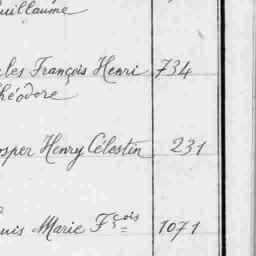 uillaume
les François Henri 734
héodore
osper Henry Célestin 231
uis Marie Fçois 1071